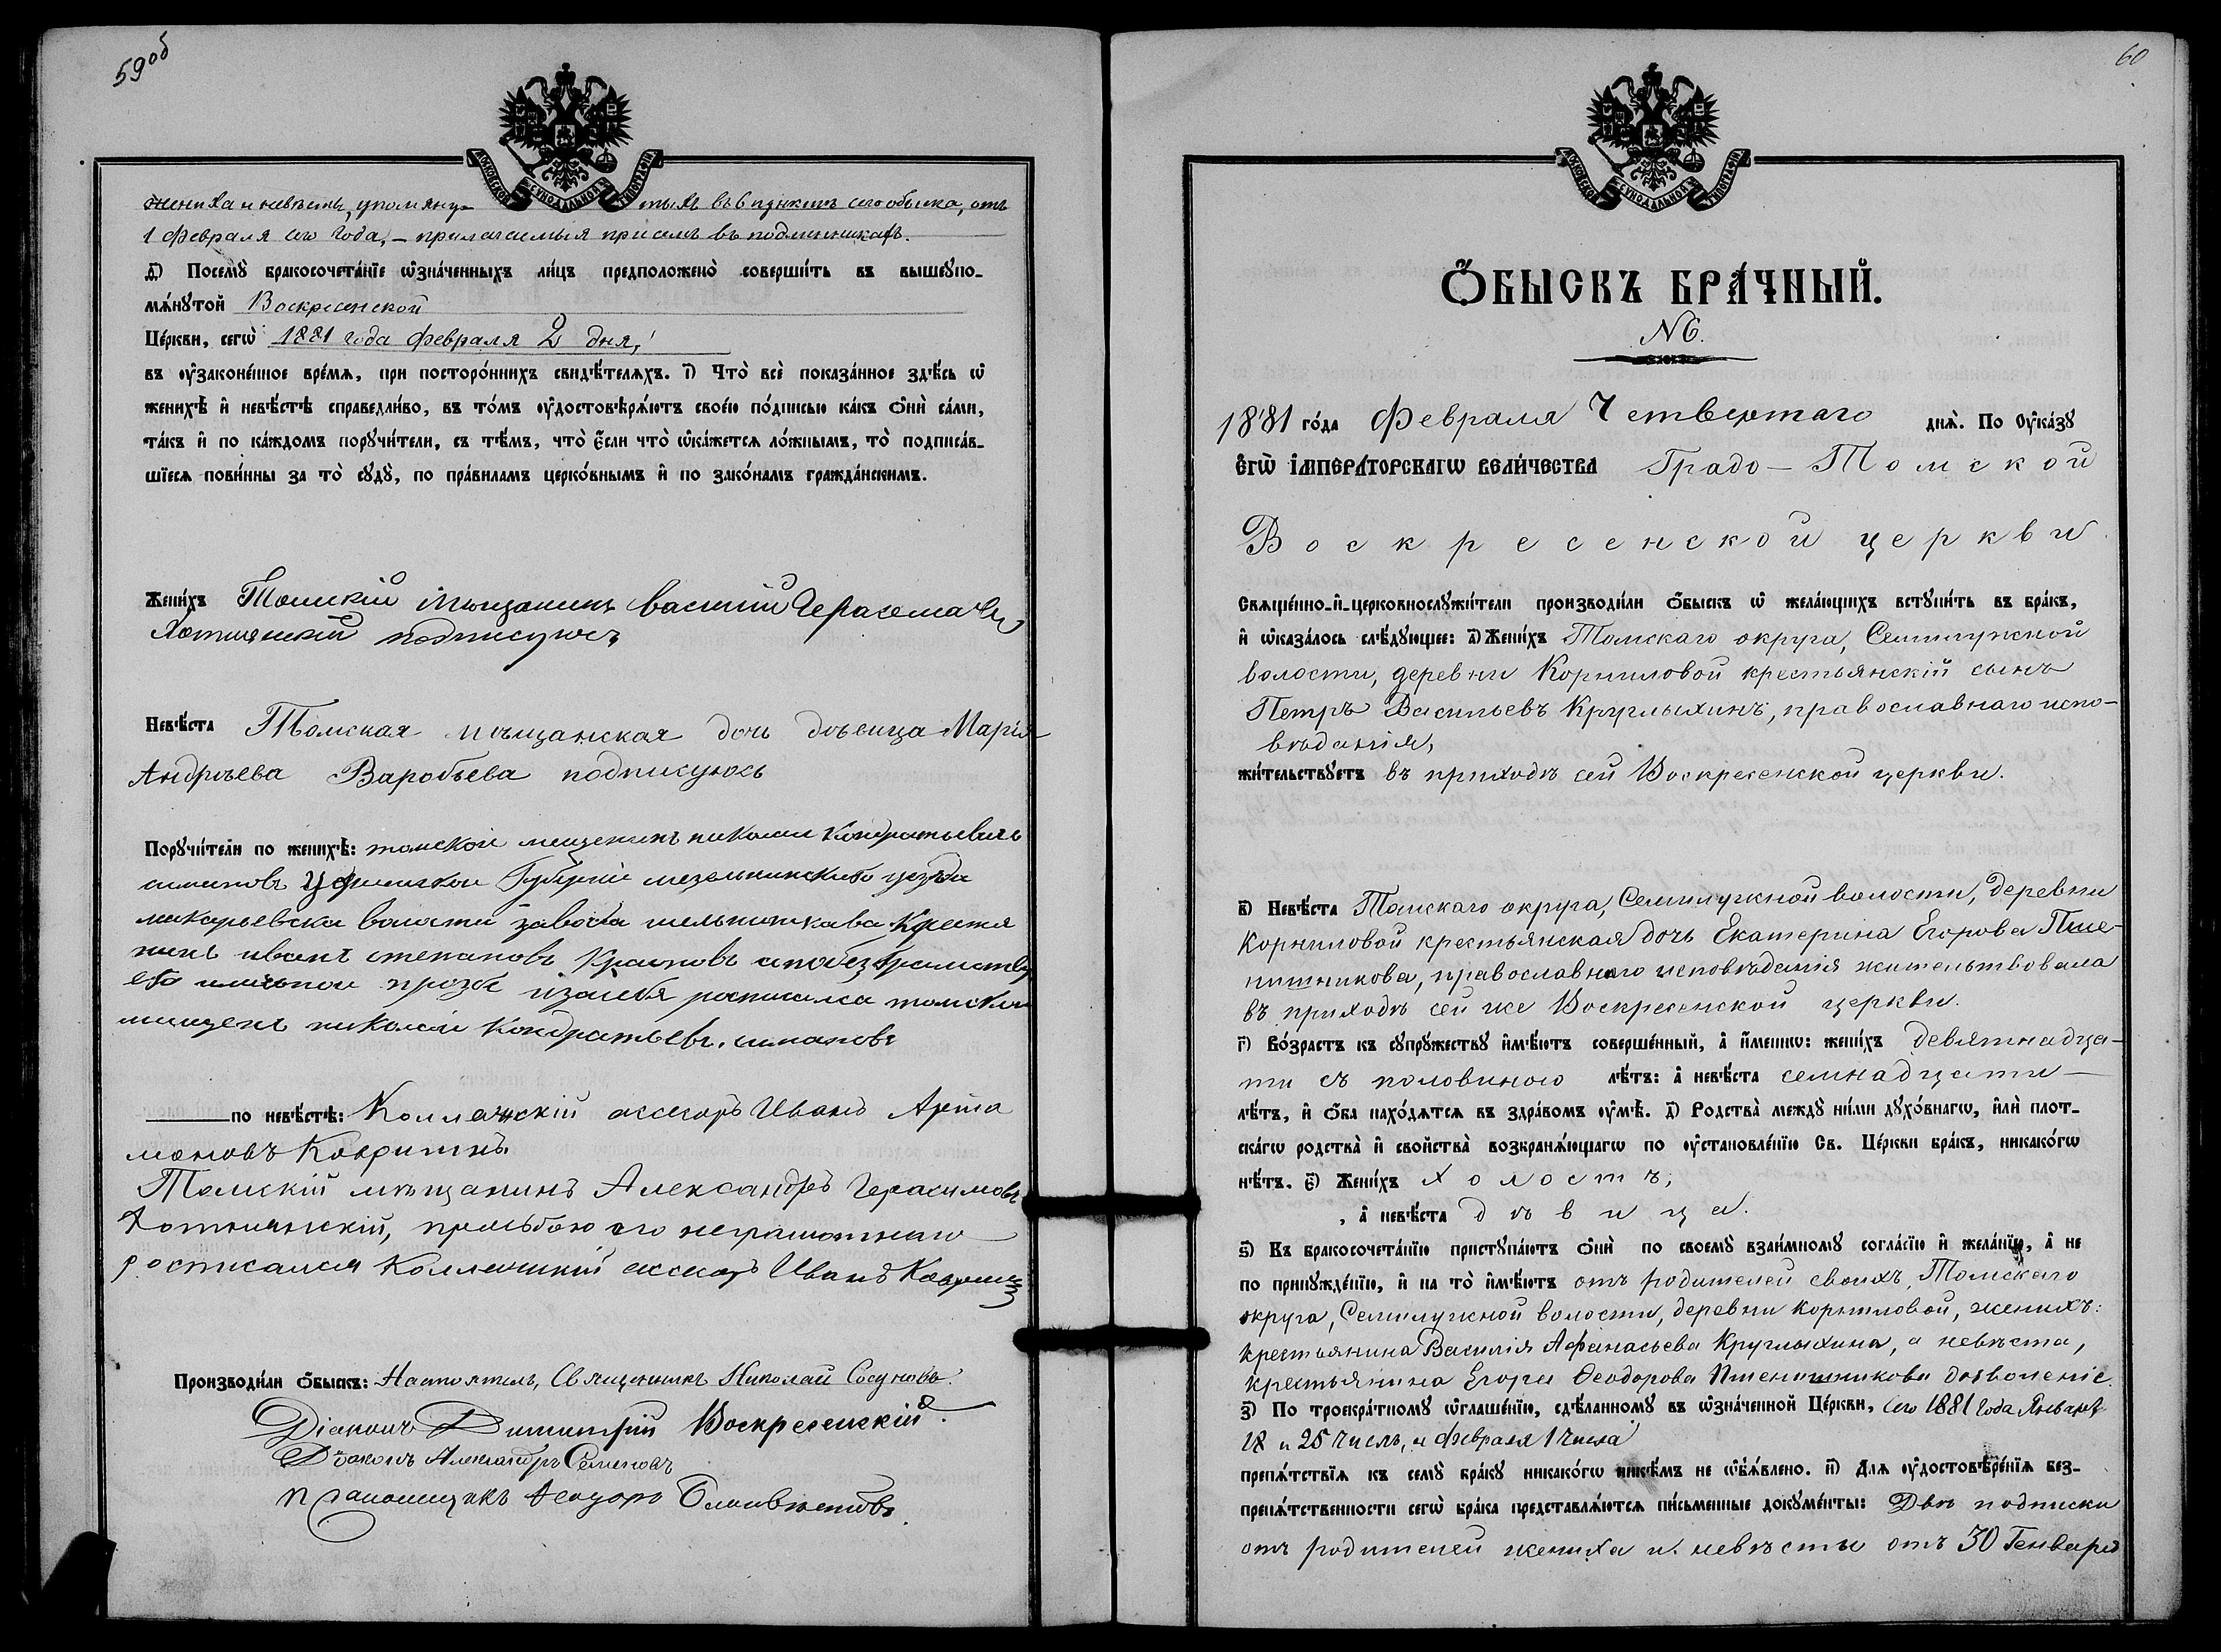 59об
МОСКОВСКОЙ СѴНОДАЛЬНОЙ ТИПОГРАФІИ
жениха и невѣсты, упомяну- тыхъ въ 6 пунктѣ сего обыска, отъ
1 Февраля сего года, – прилагаемыя при семъ въ подлинникахъ.
д҃) Посемꙋ̀ бракосочета́нїе ѡ҆зна́ченныхъ ли́цъ предположено̀ соверши́ть въ вышеꙋпо-
мѧ́нꙋтой Воскресенской
Це́ркви, сегѡ̀ 1881 года Февраля 2 дня,
въ ᲂу҆законе́нное вре́мѧ, при посторо́ннихъ свидѣ́телѧхъ. і҃) Что̀ всѐ показа́нное здѣ́сь ѡ҆
женихѣ̀ и҆ невѣ́стѣ справедли́во, въ то́мъ ᲂу҆достовѣрѧ́ютъ свое́ю по́дписью ка́къ ѻ҆нѝ са́ми,
та́къ и҆ по ка́ждомъ порꙋчи́тели, съ тѣ́мъ, что̀ є҆́сли что̀ ѡ҆ка́жетсѧ ло́жнымъ, то̀ подписа́в-
шїесѧ пови́нны за то̀ сꙋдꙋ̀, по пра́виламъ церко́внымъ и҆ по зако́намъ гражда́нскимъ.
Жени́хъ Томскій мѣщанинъ василій Герасома
Хотимскій подписуюсь
Невѣ́ста Томская мѣщанская дочь дѣвица Марія
Андрѣева Варобьева подписуюсь
Порꙋчи́тели по женихѣ̀: томской мещенинъ николаи Кондратьевичъ
симановъ Уфимскои Губернiи мезелинскаго уезда
микарьевска воласти завода
иванъ степановъ Крановъ
его личнои прозбе росписалса томскои
мищенъ николаи Кондратьевъ симановъ
по невѣ́стѣ: Коллежскій асесоръ Иванъ Арта
моновъ Ковригинъ.
Томскій мѣщанинъ Александръ Герасимовъ
Хотимскій, прозьбою его неграмотнаго
росписался Коллежскій асесоръ Иванъ Ковригинъ
Производи́ли ѻ҆́быскъ: Настоятель, Священникъ Николай Сосуновъ.
Діаконъ Димитрій Воскресенскій.
Дьяконъ Александръ Семеновъ
Псаломщикъ Ѳеодоръ
60
МОСКОВСКОЙ СѴНОДАЛЬНОЙ ТИПОГРАФІИ
Ѻ҆́БЫСКЪ БРА́ЧНЫЙ.
№ 6.
1881 го́да Февраля Четвертаго днѧ̀. По Оу҆ка́зꙋ
Є҆ГѠ̀ І҆МПЕРА́ТОРСКАГѠ ВЕЛИ́ЧЕСТВА Градо – Томской
Воскресенской церкви
Свѧще́нно-и҆-церковнослꙋжи́тели производи́ли ѻ҆́быскъ ѡ҆ жела́ющихъ встꙋпи́ть въ бра́къ,
и҆ ѡ҆каза́лось слѣ́дꙋющее: а҃) Жени́хъ Томскаго округа, Семилужной
волости, деревни Корниловой крестьянскій сынъ
Петръ Васильевъ Круглыхинъ, православнаго испо-
вѣданія,
жи́тельствꙋетъ въ приходѣ сей Воскресенской церкви.
в҃) Невѣ́ста Томскаго округа, Семилужной волости, деревни
Корниловой крестьянская дочь Екатерина Егорова Пше-
нишникова, православнаго исповѣданія жительствовала
въ приходѣ сей же Воскресенской церкви.
г҃) Во́зрастъ къ сꙋпрꙋ́жествꙋ и҆мѣ́ютъ соверше́нный, а҆ и҆́меннѡ: жени́хъ девятнадца-
ти съ половиною лѣ́тъ: а҆ невѣ́ста семнадцати –
лѣ́тъ, и҆ ѻ҆́ба нахо́дѧтсѧ въ здра́вомъ ᲂу҆мѣ̀. д҃) Родства̀ междꙋ̀ ни́ми дꙋхо́внагѡ, и҆лѝ плот-
ска́гѡ родства̀ и҆ свойства̀ возбранѧ́ющагѡ по ᲂу҆становле́нїю Св. Це́ркви бра́къ, никако́гѡ
нѣ́тъ. є҃) Жени́хъ холостъ,
, а҆ невѣ́ста дѣвица.
ѕ҃) Къ бракосочета́нїю пристꙋпа́ютъ ѻ҆нѝ по своемꙋ̀ взаи́мномꙋ согла́сїю и҆ жела́нїю, а҆ не
по принꙋжде́нїю, и҆ на то̀ и҆мѣ́ютъ отъ родителей своихъ, Томскаго
округа, Семилужной волости, деревни Корниловой, женихъ:
крестьянина Василія Афанасьева Круглыхина, а невѣста,
крестьянина Егора Ѳеодорова Пшенишникова дозволеніе.
з҃) По троекра́тномꙋ ѡ҆глаше́нїю, сдѣ́ланномꙋ въ ѡ҆зна́ченной Це́ркви, сего 1881 года Января
18 и 25 числъ, и Февраля 1 числа
препѧ́тствїѧ къ семꙋ̀ бра́кꙋ никако́гѡ никѣ́мъ не ѡ҆б̾ѧ́влено. и҃) Длѧ ᲂу҆достовѣре́нїѧ без-
препѧ́тственности сегѡ̀ бра́ка представлѧ́ютсѧ пи́сьменные докꙋме́нты: Двѣ подписки
отъ родителей жениха и невѣсты отъ 30 Генваря